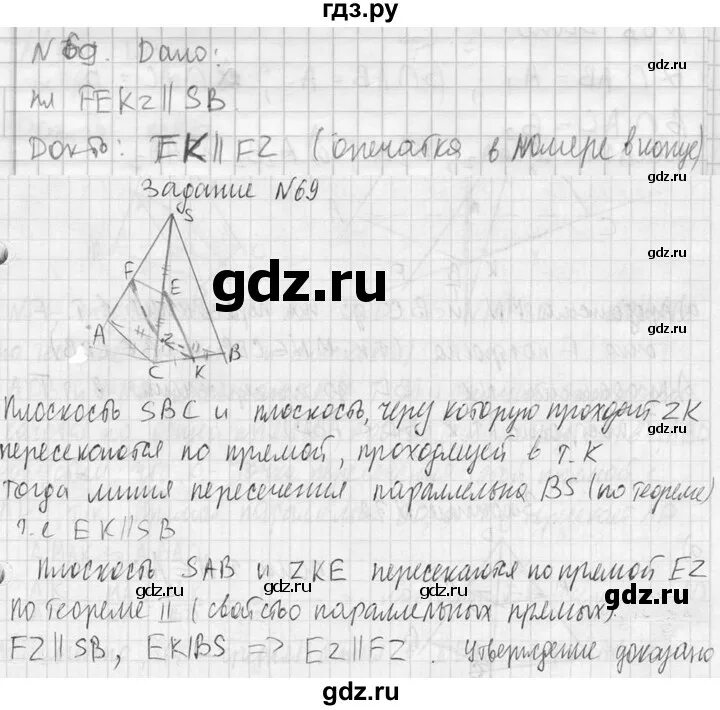 гдз.ру
N 69. Дано:
пл FEKZ || SB.
Док-ть: EK || FZ (опечатка в номере в конце)
Задание N69
S
F
E
A
Z
B
C
K
Плоскость SBC и плоскость, через которую проходит ZK
пересекаются по прямой, проходящей в т. K
тогда линия пересечения параллельна BS (по теореме)
т.е EK || SB
Плоскость SAB и ZKE пересекаются по прямой EZ
по теореме || (свойство параллельных прямых).
FZ || SB, EK || BS => EZ || FZ. Утверждение доказано
gdz.ru
gdz.ru
gdz.ru
gdz.ru
gdz.ru
gdz.ru
gdz.ru
gdz.ru
gdz.ru
gdz.ru